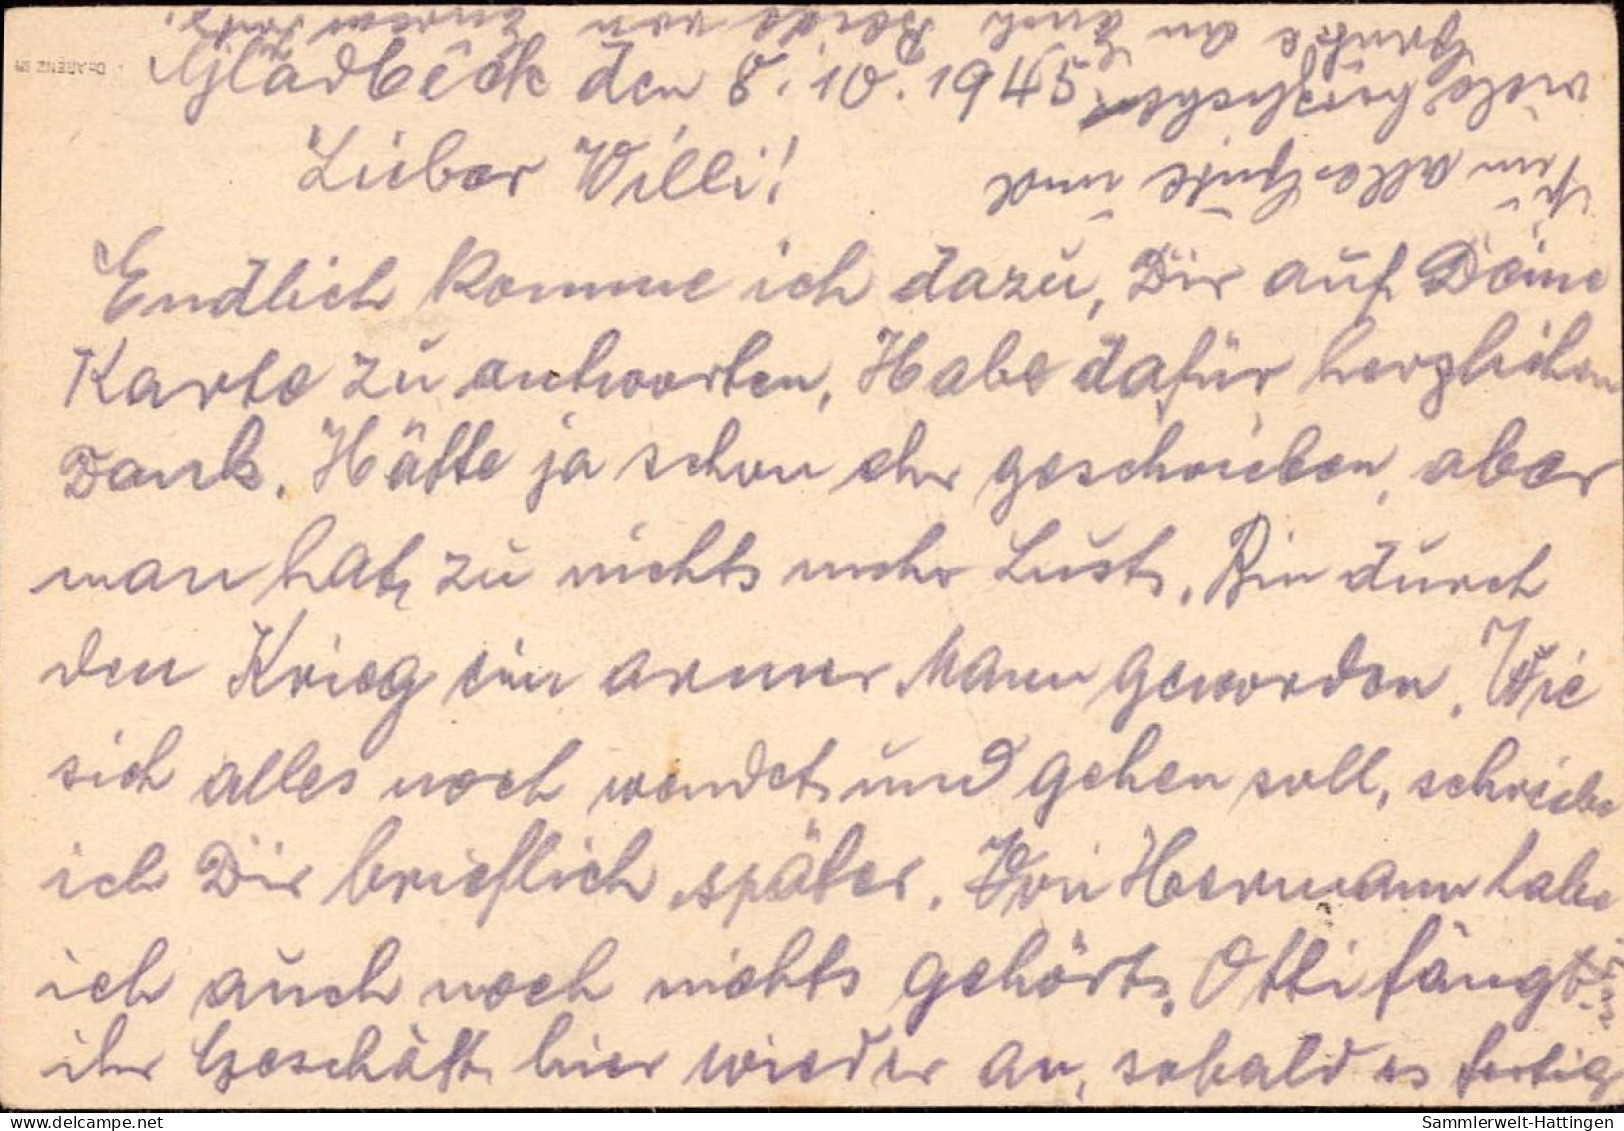 Gladbeck den 8.10.1945
Lieber Willi!
Endlich komme ich dazu, Dir auf Deine
Karte zu antworten, Habe dafür herzlichen
Dank. Hätte ja schon ehr geschrieben, aber
man hat zu nichts mehr Lust. Bin durch
den Krieg ein armer Mann geworden. Wie
sich alles noch wendet und gehen soll, schreibe
ich Dir brieflich später. Von Hermann habe
ich auch noch nichts gehört. Otti fängt
ihr Geschäft hier wieder an, sobald es fertig
alles Gute und
viele herzliche
Grüße an Euch Beide von Eurem
Dr. ARENZ
Sammlerwelt-Hattingen
www.delcampe.net